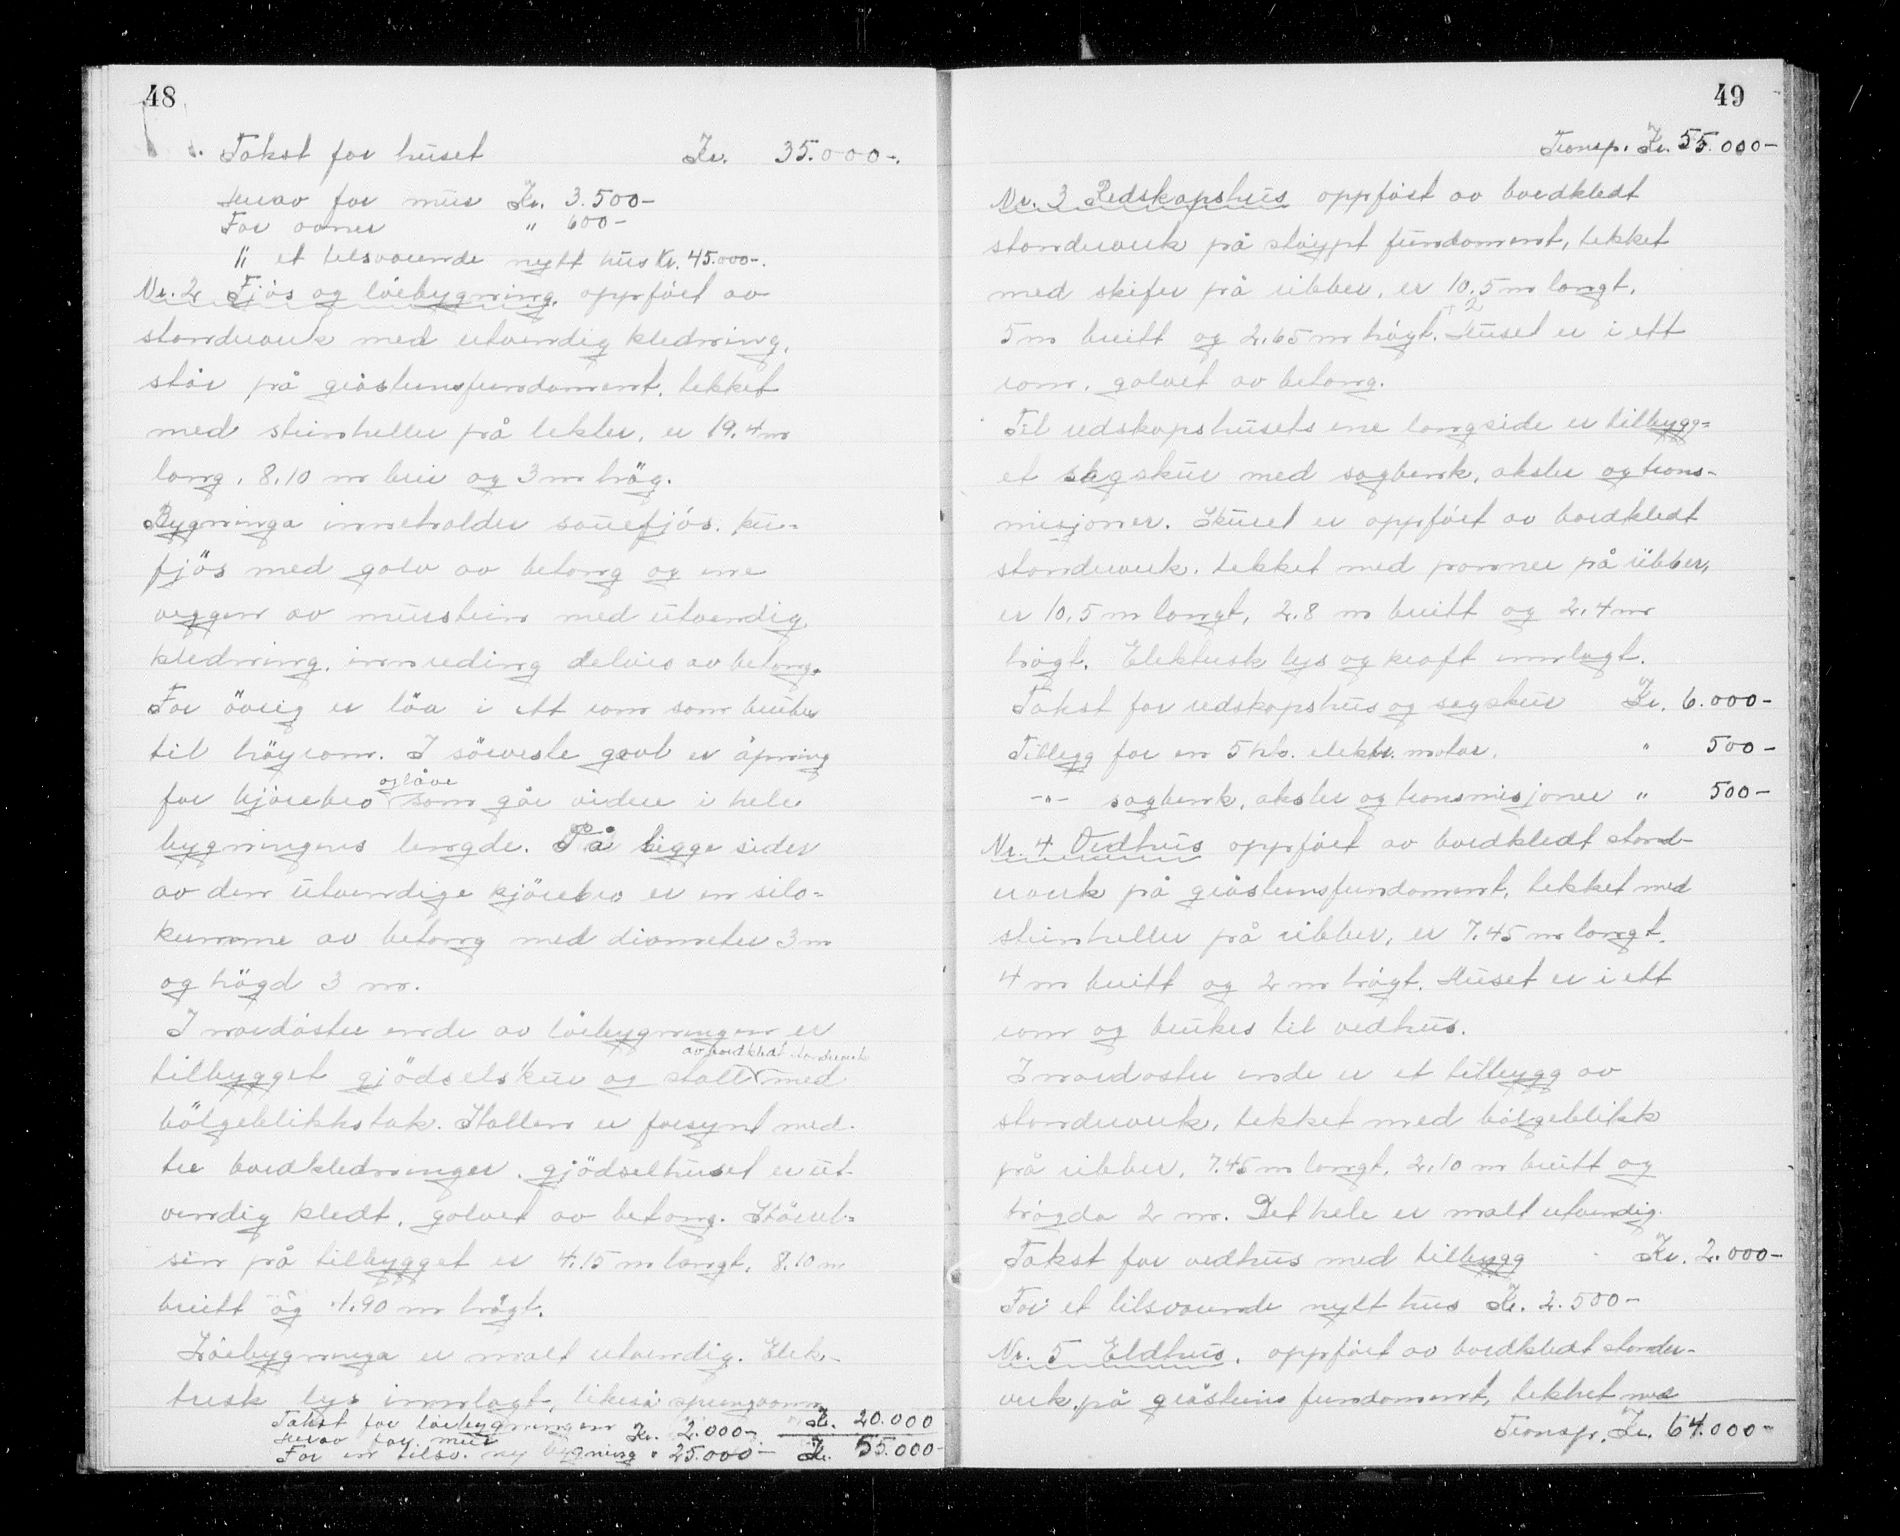 48
Takst for huset Kr. 35.000-.
Herav for mur Kr. 3.500-
For ovner " 600-
" et tilsvarende nytt hus Kr. 45.000-.
Nr. 2 Fjös og löebygning, oppfört av
standverk med utvendig kledning,
står på gråsteinsfundament, tekket
med steinheller på lekter, er 19,4 m
lang, 8,10 m brei og 3 m hög.
Bygninga inneholder sauefjös, ku-
fjös med golv av betong og ene
veggen av murstein med utvendig
kledning, innreding delvis av betong.
For övrig er löa i ett rom som brukes
til höyrom. I sörveste gavl er åpning
for kjörebro og låve som går videre i hele
bygningens lengde. På begge sider
av den utvendige kjörebro er en silo-
kumme av betong med diameter 3 m
og högd 3 m.
I nordöstre ende av löebygningen er
tilbygget gjödselskur og stall av bordkledt standverk med
bölgeblikkstak. Stallen er forsynt med
tre bordkledninger, gjödselhuset er ut-
vendig kledt, golvet av betong. Störrel-
sen på tilbygget er 4,15 m langt, 8,10 m
breitt og 1,90 m högt.
Löebygninga er malt utvendig. Elek-
trisk lys innlagt, likeså springvann
Takst for löebygningen Kr. 20.000
Herav for mur Kr. 2.000-
For en tilsv. ny bygning " 25.000- Kr. 55.000-
49
Transp. Kr. 55.000-
Nr. 3 Redskapshus oppfört av bordkledt
standverk på stöypt fundament, tekket
med skifer på ribber, er 10,5 m langt,
5 m breitt og 2,65 m högt. Huset er i ett
rom, golvet av betong.
Til redskapshusets ene langside er tilbygg-
et sagskur med sagbenk, aksler og trans-
misjoner. Skuret er oppfört av bordkledt
standverk, tekket med panner på ribber,
er 10,5 m langt, 2,8 m breitt og 2,4 m
högt. Elektrisk lys og kraft innlagt.
Takst for redskapshus og sagskur Kr. 6.000-
Tillegg for en 5 hk. elektr. motor. " 500-
-"- sagbenk, aksler og transmisjoner " 500-
Nr. 4 Vedhus oppfört av bordkledt stand-
verk på gråsteinsfundament, tekket med
steinheller på ribber, er 7,45 m langt,
4 m breitt og 2 m högt. Huset er i ett
rom og brukes til vedhus.
I nordöstre ende er et tilbygg av
standverk, tekket med bölgeblikk
på ribber, 7,45 m langt, 2,10 m breitt og
högda 2 m. Det hele er malt utvendig.
Takst for vedhus med tilbygg Kr. 2.000-
For et tilsvarende nytt hus Kr. 2.500-
Nr. 5 Eldhus, oppfört av bordkledt stander-
verk på gråsteins fundament, tekket med
Transp. Kr. 64.000-